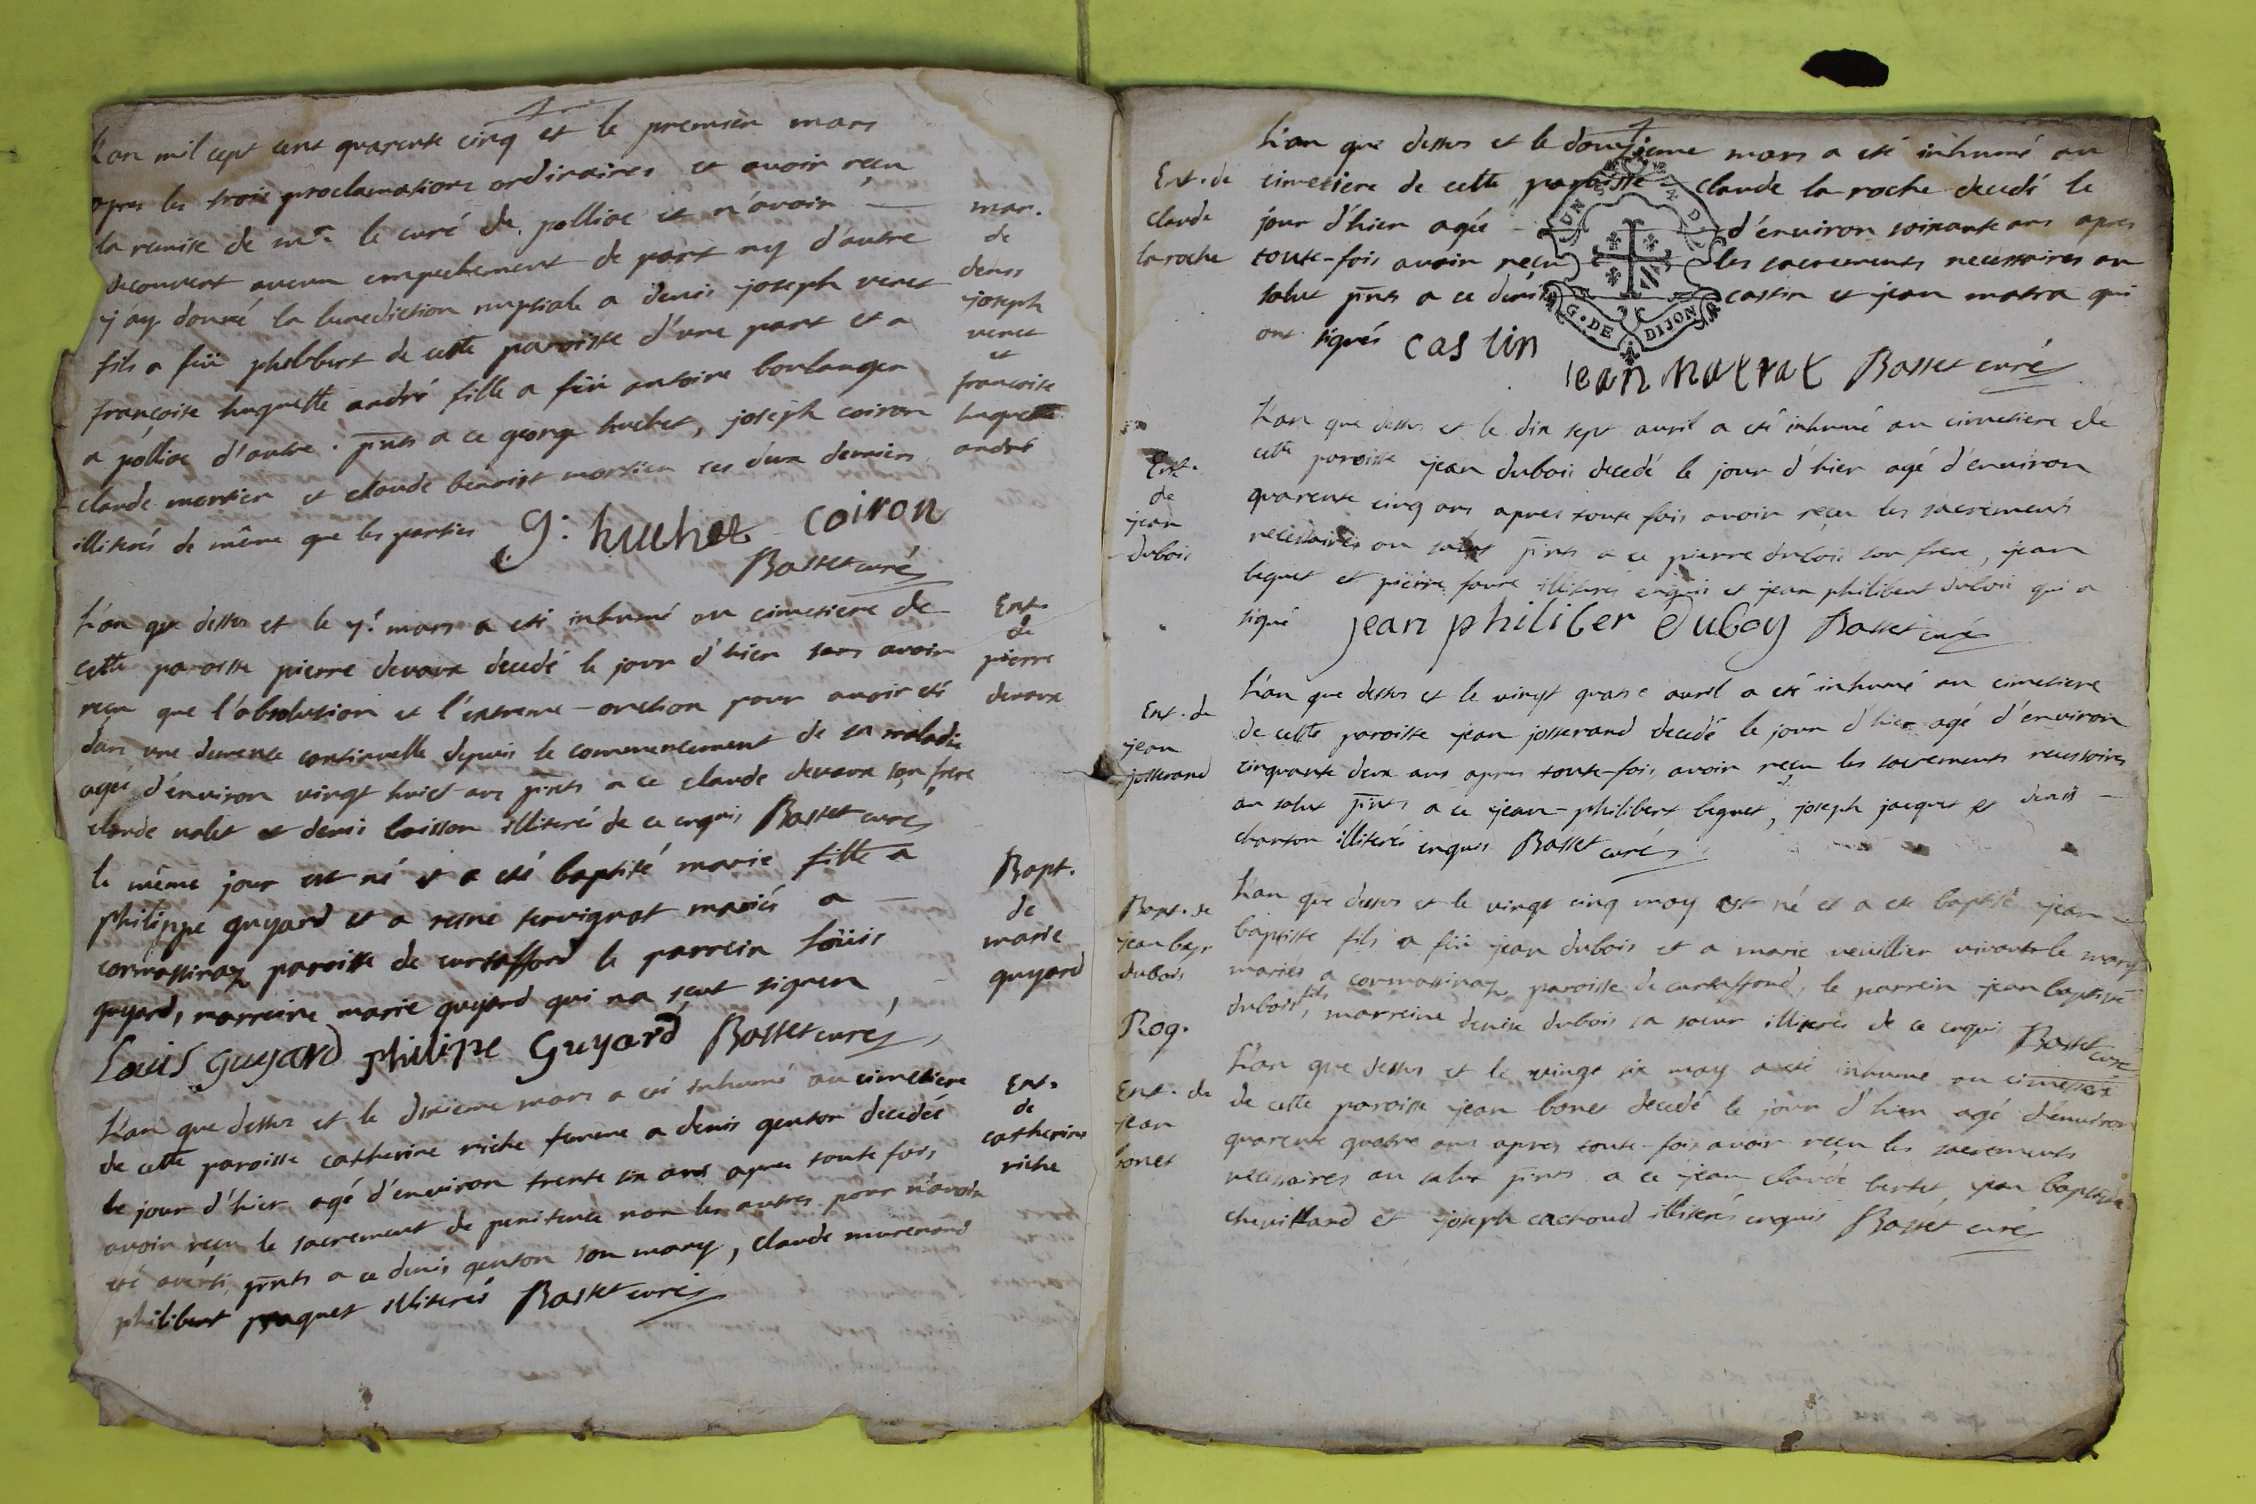 L'an mil sept cent quarente cinq et le premier mars
apres les trois proclamations ordinaires et avoir reçu
la remise de mr. le curé de polliac et n'avoir
decouvert aucun empechement de part ny d'autre
j'ay donné la benediction nuptiale a denis joseph veret
fils a füü philibert de cette paroisse d'une part et a
françoise huguette andré fille a füü antoine boulanger
a polliac d'autre. pnts a ce george huchet, joseph coiron
claude mortier et claude benoist mortier ces deux derniers
illiterés de même que les parties G: huchet coiron
Basset curé
mar.
de
denis
joseph
veret
et
françoise
huguette
andré
L'an que dessus et le 7e mars a eté inhumé au cimetiere de
cette paroisse pierre devaux decedé le jour d'hier sans avoir
reçu que l'absolution et l'extreme-onction pour avoir eté
dans une demence continuelle depuis le commencement de sa maladie
agé d'environ vingt huict ans pnts a ce claude devaux son frere
claude valet et denis loisson illiterés de ce enquis Basset curé
Ent.
de
pierre
devaux
le même jour est né et a eté baptisé marie fille a
philippe guyard et a reine servignat mariés a
cormassinaz paroisse de curtaffond le parrein loüis
guyard, marreine marie guyard qui na sçeut signer
Louis Guyard philipe Guyard Basset curé
Bapt.
de
marie
guyard
L'an que dessus et le dixieme mars a eté inhumé au cimetiere
de cette paroisse catherine riche femme a denis genton decedée
le jour d'hier agé d'environ trente six ans apres toute fois
avoir reçu le sacrement de penitence non les autres pour n'avoir
eté averti pnts a ce denis genton son mary, claude murenand
philibert paquet illiterés Basset curé
Ent.
de
catherine
riche
L'an que dessus et le douzieme mars a eté inhumé au
cimetiere de cette paroisse claude la roche decedé le
jour d'hier agé d'environ soixante ans apres
toute-fois avoir reçu les sacrements necessaires au
salut pnts a ce denis castin et jean matra qui
ont signés castin
jean matrat Basset curé
Ent. de
claude
la roche
G. DE DIJON
L'an que dessus et le dix sept avril a eté inhumé au cimetiere de
cette paroisse jean dubois decedé le jour d'hier agé d'environ
quarente cinq ans apres toute fois avoir reçu les sacrements
necessaires au salut pnts a ce pierre dubois son frere, jean
beguet et pierre favre illiterés enquis et jean philibert dubois qui a
signé jean philiber duboy Basset curé
Ent.
de
jean
dubois
L'an que dessus et le vingt quatre avril a eté inhumé au cimetiere
de cette paroisse jean josserand decedé le jour d'hier agé d'environ
cinquante deux ans apres toute-fois avoir reçu les sacrements necessaires
au salut pnts a ce jean-philibert beguet, joseph jacquet et denis
chanton illiterés enquis Basset curé
Ent. de
jean
josserand
L'an que dessus et le vingt cinq may est né et a eté baptisé jean
baptiste fils a füü jean dubois et a marie veuillier vivants le mary
mariés a cormassinaz paroisse de curtaffond, le parrein jean baptiste
dubois fils, marreine denise dubois sa soeur illiterés de ce enquis Basset curé
Bapt. de
jean bapt
dubois
Rog.
L'an que dessus et le vingt six may a eté inhumé au cimetiere
de cette paroisse jean bonet decedé le jour d'hier agé d'environ
quarente quatre ans apres toute-fois avoir reçu les sacrements
necessaires au salut pnts a ce jean claude bertet, jean baptiste
chevillard et joseph cachoud illiterés enquis Basset curé
Ent. de
jean
bonet